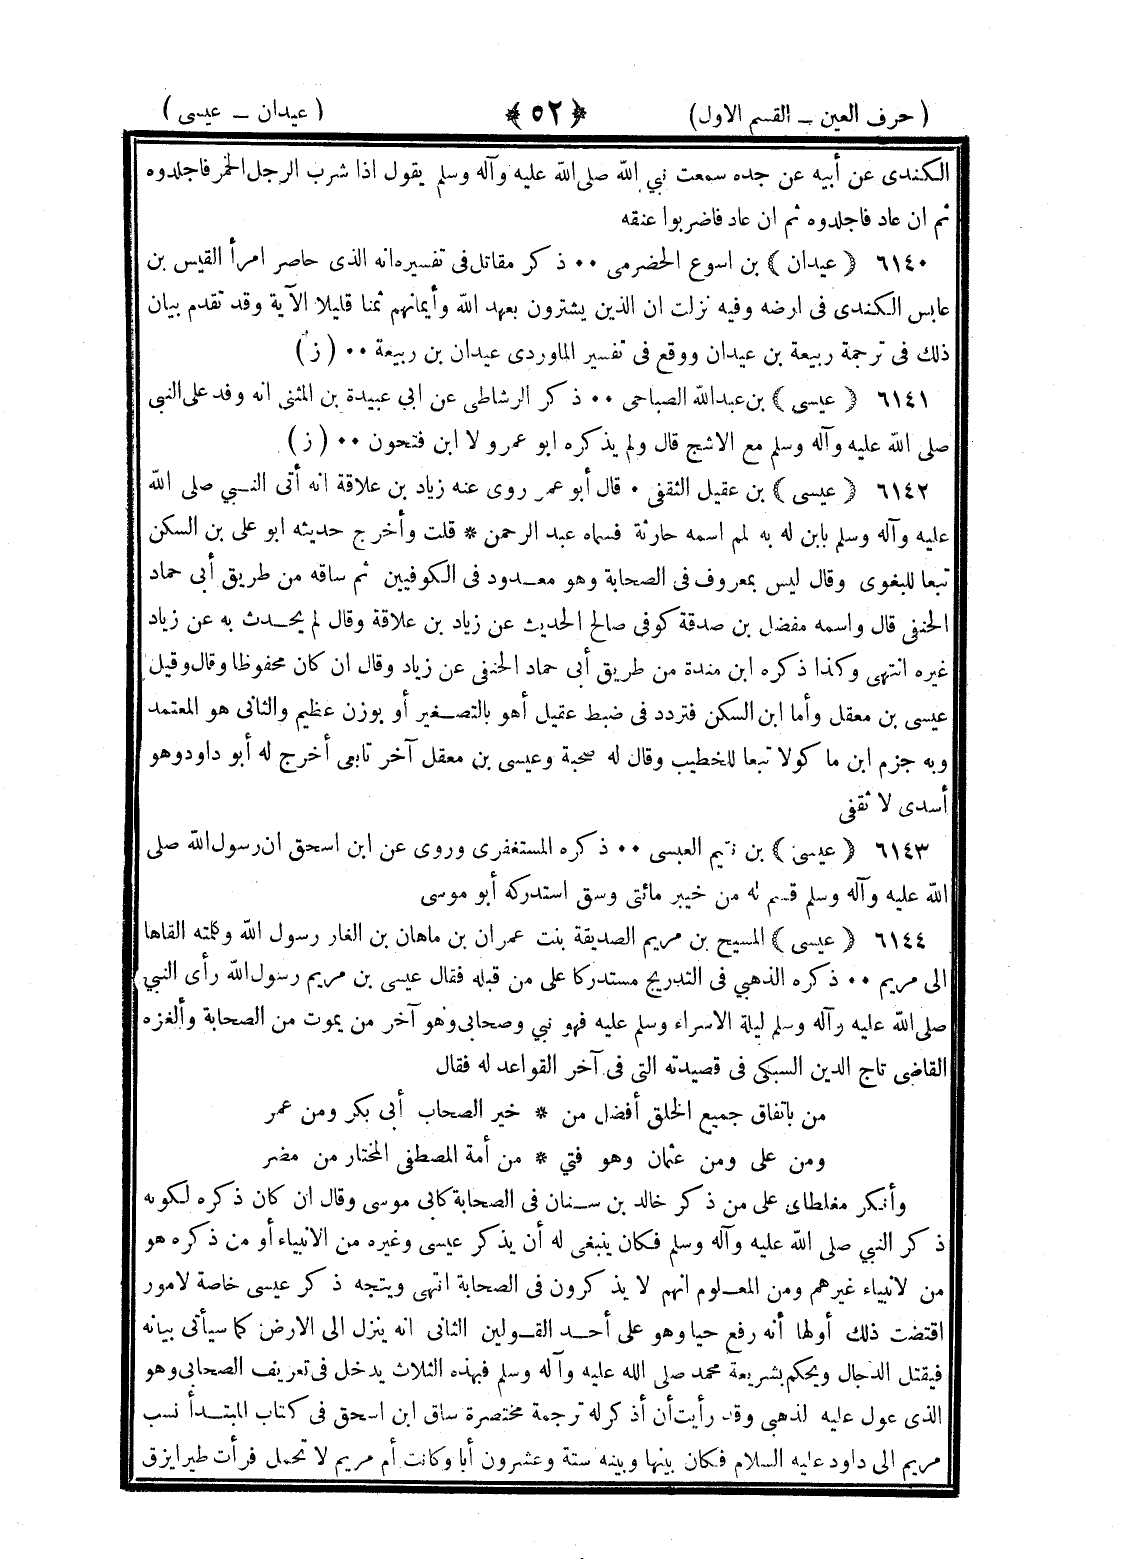 ( حرف العين – القسم الاول ) ﴿ ٥٢ ﴾ ( عيدان – عيسى )
الكندى عن أبيه عن جده سمعت نبي الله صلى الله عليه وآله وسلم يقول اذا شرب الرجل الخمر فاجلدوه
ثم ان عاد فاجلدوه ثم ان عاد فاضربوا عنقه
٦١٤٠ ﴿ عيدان ﴾ بن اسوع الحضرمى ٠٠ ذكر مقاتل فى تفسيره انه الذى حاصر امرأ القيس بن
عابس الكندى فى ارضه وفيه نزلت ان الذين يشترون بعهد الله وأيمانهم ثمنا قليلا الآية وقد تقدم بيان
ذلك فى ترجمة ربيعة بن عيدان ووقع فى تفسير الماوردى عيدان بن ربيعة ٠٠ ( ز )
٦١٤١ ﴿ عيسى ﴾ بن عبد الله الصباحى ٠٠ ذكر الرشاطى عن ابي عبيدة بن المثنى انه وفد على النبى
صلى الله عليه وآله وسلم مع الاشج قال ولم يذكره ابو عمرو لا ابن فتحون ٠٠ ( ز )
٦١٤٢ ﴿ عيسى ﴾ بن عقيل الثقفى ٠ قال أبو عمر روى عنه زياد بن علاقة انه أتى النبي صلى الله
عليه وآله وسلم بابن له به لمم اسمه حارثة فسماه عبد الرحمن * قلت وأخرج حديثه ابو على بن السكن
تبعا للبغوى وقال ليس بمعروف فى الصحابة وهو معدود فى الكوفيين ثم ساقه من طريق أبي حماد
الحنفى قال واسمه مفضل بن صدقة كوفى صالح الحديث عن زياد بن علاقة وقال لم يحدث به عن زياد
غيره انتهى وكذا ذكره ابن مندة من طريق أبى حماد الحنفى عن زياد وقال ان كان محفوظا وقال وقيل
عيسى بن معقل وأما ابن السكن فتردد فى ضبط عقيل أهو بالتصغير أو بوزن عظيم والثانى هو المعتمد
وبه جزم ابن ماكولا تبعا للخطيب وقال له صحبة وعيسى بن معقل آخر تابعى أخرج له أبو داود وهو
أسدى لا ثقفى
٦١٤٣ ﴿ عيسى ﴾ بن لقيم العبسى ٠٠ ذكره المستغفرى وروى عن ابن اسحق ان رسول الله صلى
الله عليه وآله وسلم قسم له من خيبر مائتى وسق استدركه أبو موسى
٦١٤٤ ﴿ عيسى ﴾ المسيح بن مريم الصديقة بنت عمران بن ماهان بن الغار رسول الله وكلمته القاها
الى مريم ٠٠ ذكره الذهبي فى التدريج مستدركا على من قبله فقال عيسى بن مريم رسول الله رأى النبي
صلى الله عليه وآله وسلم ليلة الاسراء وسلم عليه فهو نبي وصحابى وهو آخر من يموت من الصحابة وألغزه
القاضى تاج الدين السبكى فى قصيدته التى فى آخر القواعد له فقال
من باتفاق جميع الخلق أفضل من * خير الصحاب أبى بكر ومن عمر
ومن على ومن عثمان وهو فتي * من أمة المصطفى المختار من مضر
وأنكر مغلطاى على من ذكر خالد بن سنان فى الصحابة كابى موسى وقال ان كان ذكره لكونه
ذكر النبي صلى الله عليه وآله وسلم فكان ينبغى له أن يذكر عيسى وغيره من الانبياء أو من ذكره هو
من لانبياء غيرهم ومن المعلوم انهم لا يذكرون فى الصحابة انتهى ويتجه ذكر عيسى خاصة لامور
اقتضت ذلك أولها أنه رفع حيا وهو على أحد القولين الثانى انه ينزل الى الارض كما سيأتى بيانه
فيقتل الدجال ويحكم بشريعة محمد صلى الله عليه وآله وسلم فبهذه الثلاث يدخل فى تعريف الصحابى وهو
الذى عول عليه لذهبى وقد رأيت أن أذكر له ترجمة مختصرة ساق ابن اسحق فى كتاب المبتدأ نسب
مريم الى داود عليه السلام فكان بينها وبينه ستة وعشرون أبا وكانت أم مريم لا تحمل فرأت طيرا يزق